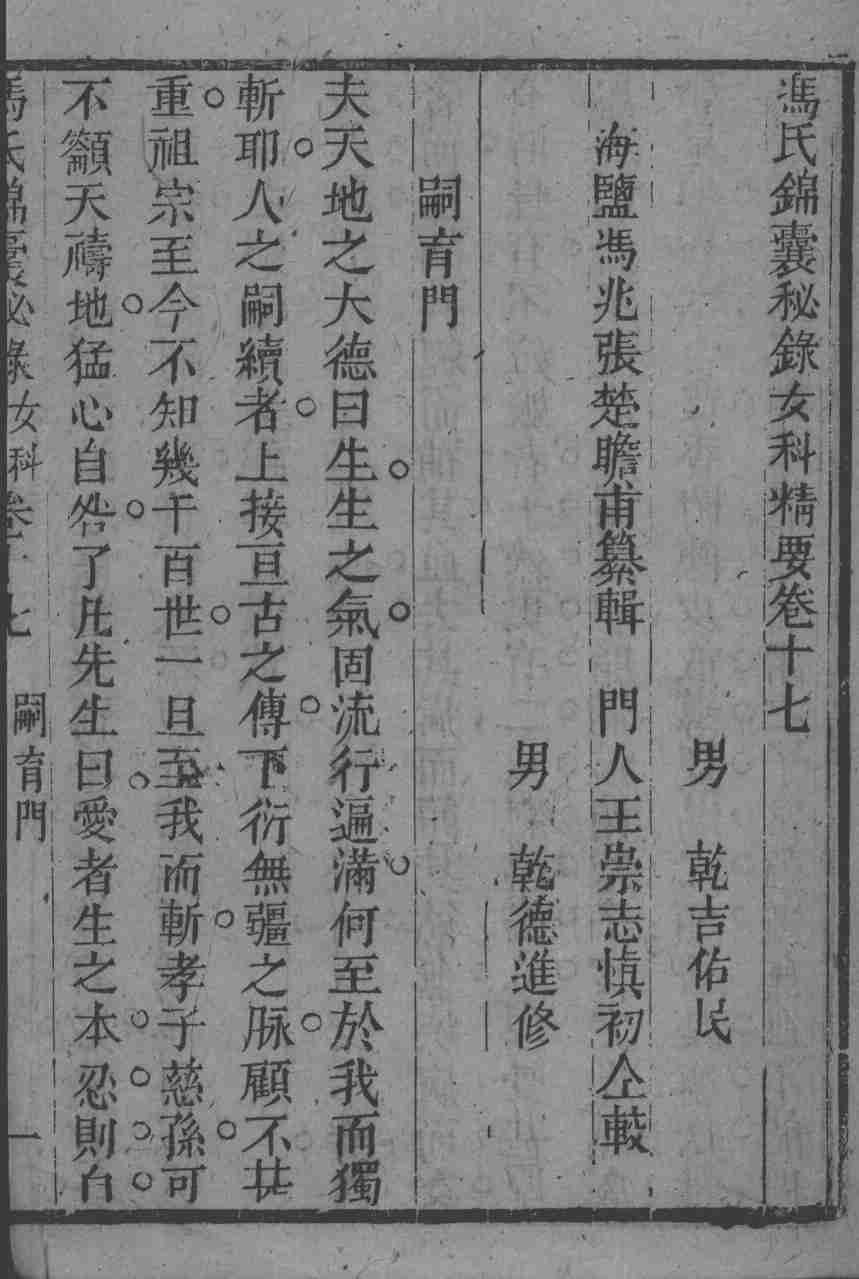 馮氏錦囊秘錄女科精要卷十七
男　乾吉佑民
海鹽馮兆張楚瞻甫纂輯　門人王崇志慎初仝較
男　乾德進修
嗣育門
夫天地之大德曰生生之氣固流行遍滿何至於我而獨
斬耶人之嗣續者上接亘古之傳下衍無疆之脉顧不甚
重祖宗至今不知幾千百世一旦至我而斬孝子慈孫可
不籲天禱地猛心自咎了凡先生曰愛者生之本忍則自
馮氏錦囊秘錄女科卷十七　嗣育門　一